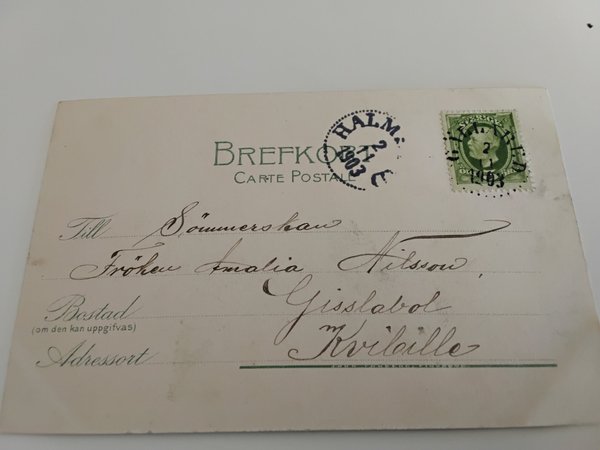 BREFKORT
CARTE POSTALE
HALMS
2
1
1903
2
1
1903
Till Sömmerskan
Fröken Amalia Nilsson,
Bostad Gisslabol
(om den kan uppgifvas)
Adressort Kvibille